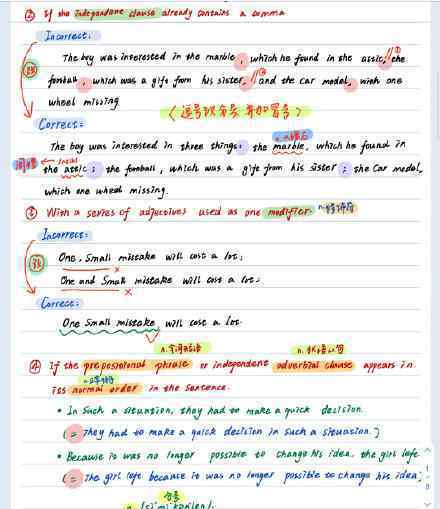 ② If the independent clause already contains a comma
Incorrect:
The boy was interested in the marble, which he found in the attic, the ①
football, which was a gift from his sister, ② and the car model, with one
wheel missing
(逗号改分号 并加冒号)
Correct:
n.大理石
The boy was interested in three things: the marble, which he found in
阁楼 the attic; the football, which was a gift from his sister; the car model,
which one wheel missing.
③ With a series of adjectives used as one modifier. n.修饰语
Incorrect:
One, Small mistake will cost a lot;
One and Small mistake will cost a lot;
Correct:
One Small mistake will cost a lot.
n.介词短语 n.状语从句
④ If the prepositional phrase or independent adverbial clause appears in
its normal order in the sentence.
• In Such a situation, they had to make a quick decision.
(= They had to make a quick decision in such a situation.)
• Because it was no longer possible to change his idea, the girl left
(= The girl left because it was no longer possible to change his idea;
分号